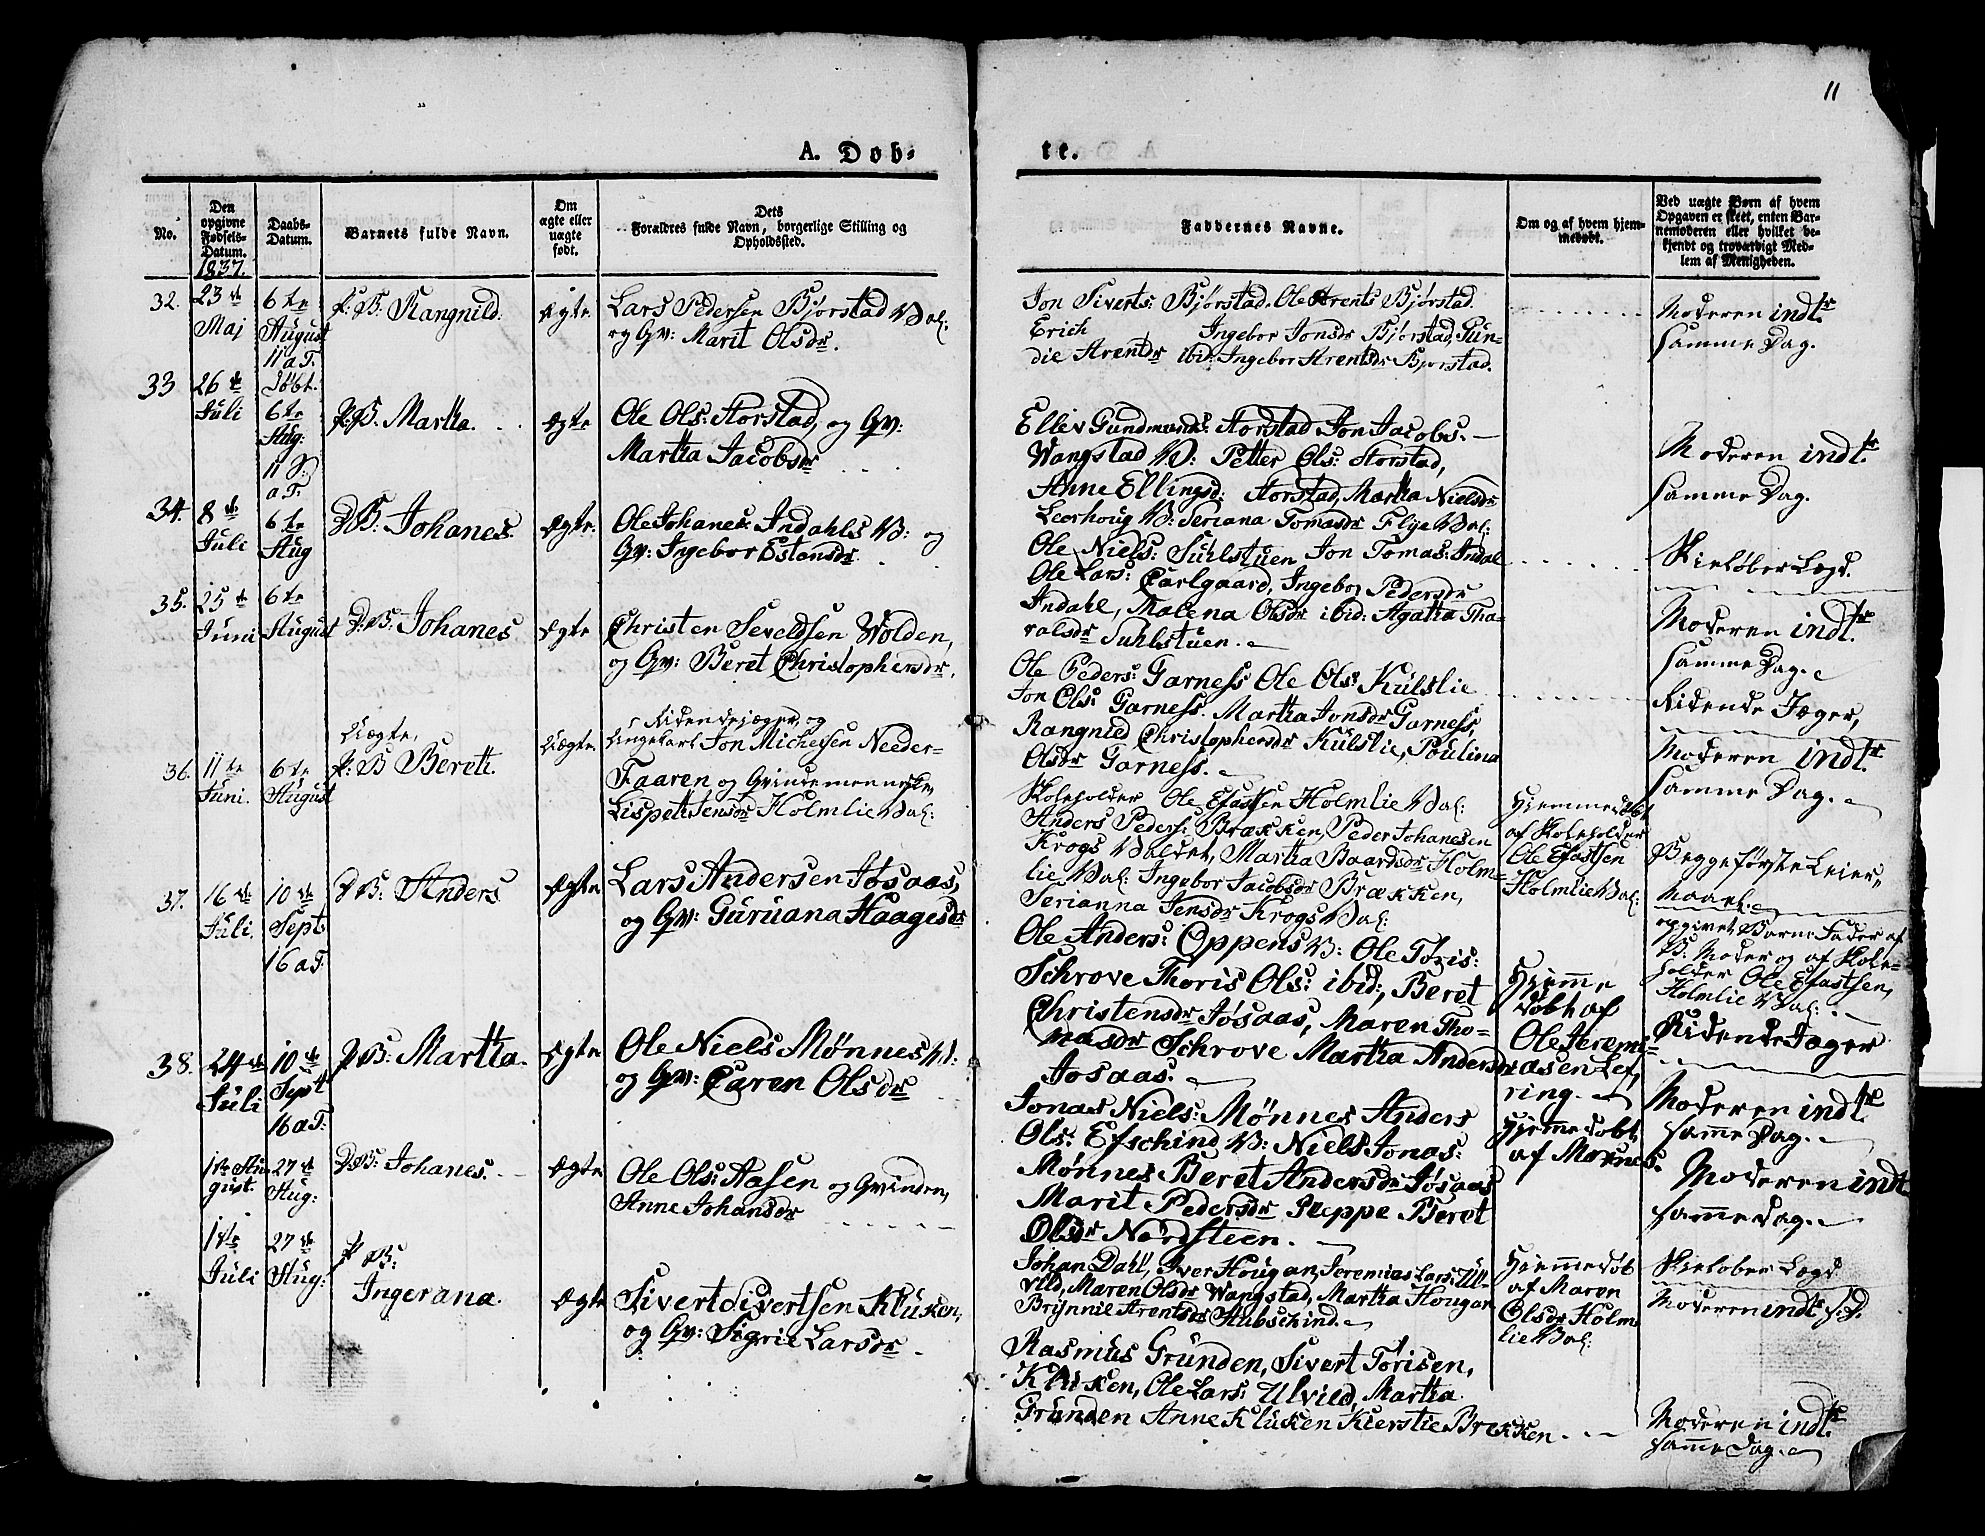 11
A. Døb-
te.
No.
Den opgivne Fødsels-Datum.
1837.
Daabs-Datum.
Barnets fulde Navn.
Om ægte eller uægte født.
Dets
Forældres fulde Navn, borgerlige Stilling og
Opholdssted.
Faddernes Navne.
Om og af hvem hjem-
medøbt.
Ved uægte Børn af hvem
Opgaven er skeet, enten Bar-
nemoderen eller hvilket be-
kjendt og troværdigt Med-
lem af Menigheden.
32.
23de
Maj
6te
August
11 a T.
P: B: Rangnild.
Ægte
Lars Pedersen Bjørstad Val:
og Gv: Marit Olsdr.
Jon Siverts: Bjørstad. Ole Arents Bjørstad.
Erich Ingebor Jonsdr Bjørstad, Gun-
die Arentdr ibid: Ingebor Arentsdr Bjørstad.
Moderen indtr
samme Dag.
33
26de
Juli
Døbt.
6te
Aug:
11 S:
a T.
P: B. Martha.
Ægte
Ole Ols: Storstad, og Gv:
Martha Jacobsdr
Ellev Gundmunds: Storstad Jon Jacobs.
Wangstad V: Petter Ols: Storstad,
Anne Ellingsd: Storstad, Martha Nielsdr
Leerhoug V: Seriana Tomasdr Flye Val:
Moderen indtr
samme Dag.
34.
8de
Juli
6te
Aug
D.B. Johanes.
Ægte.
Ole Johanes: Indahls V: og
Gv: Ingebor Estensdr
Ole Niels: Suhlstuen Jon Tomas: Indal
Ole Lars: Carlgaard, Ingebor Pedersdr
Indahl, Malena Olsdr ibid: Agatha Tha-
ralsdr Suhlstuen.
Skieløber Lægd.
Moderen indtr
samme Dag.
35.
25de
Juni
6te
August
D: B: Johanes
Ægte
Christen Seveldsen Wolden,
og Gv: Beret Christophersdr.
Ole Peders: Garness Ole Ols: Kulslie
Jon Ols: Garness. Martha Jonsdr Garness,
Rangnied Christophersdr Kulslie, Poulina
Olsdr Garness.
Ridende Jæger,
Moderen indtr
samme Dag.
36.
11te
Juni.
6te
August
Uægte,
P: B Bereth.
Uægte
Ridendejæger og
Ungekarl Jon Michelsen Needer-
Faaren og Gvindemenneske,
Lispeth Jensdr Holmlie Val:
Skoleholder Ole Efastsen Holmlie Val:
Anders Peders: Brækken, Peder Johanesen
Krogs Valdet, Martha Baardsdr Holm-
lie Val: Ingebor Jacobsdr Brækken,
Serianna Jensdr Krogs Val:
Hjemmedøbt
af Skoleholder
Ole Efastsen
Holmlie Val:
Begge første Leier-
maal.
opgivet Barne Fader af
B. Moder og af Skole-
holder Ole Efastsen,
Holmlie Val:
37.
16de
Juli.
10de
Sept
16 a T.
D.B: Anders
Ægte
Lars Andersen Jøsaas,
og Gv: Guruana Haagesdr
Ole Anders: Oppens V: Ole Toris:
Schrove Thoris Ols: ibid:, Beret
Christensdr Jøsaas, Maren Tho-
masdr Schrove Martha Andersdr
Josaas.
Hjemme
døbt af
Ole Jeremi-
asen Lef,
ring.
Ridende Jæger
Moderen indtr
samme Dag.
38.
24de
Juli
10de
Sept
16 a T:
P: B: Martha.
Ægte
Ole Niels Mønnes V:
og Gv: Caren Olsdr
Jonas Niels: Mønnes Anders
Ols: Efschind V: Niels Jonas:
Mønnes Beret Andersdr Jøsaas
Marit Pedersdr Reppe Beret
Olsdr Nordsteen.
Hjemmedøbt
af Mønnes.
Moderen indtr
samme Dag.
1te Au-
gust.
27de
Aug:
D.B: Johanes.
Ægte
Ole Ols: Aasen og Gvinden,
Anne Johansdr
Johan Dahl, Iver Hougan, Jeremias Lars: Ul-
vild, Maren Olsdr Wangstad, Martha Hougan
Brynnie Arentsdr Aubschind.
Hjemmedøb
af Maren
Olsdr Holm
lie Val:
Skieløber Lægd
Moderen indtr s. D.
1ste
Juli
27de
Aug:
P. B:
Ingerana.
Ægte
Sivert Sivertsen Kluken,
og Gv: Sigrie Larsdr.
Rasmus Grunden, Sivert Torisen,
Kluken, Ole Lars: Ulvild, Martha
Grunden Anne Kluken Kierstie Brekken.
Moderen indtr
samme Dag.